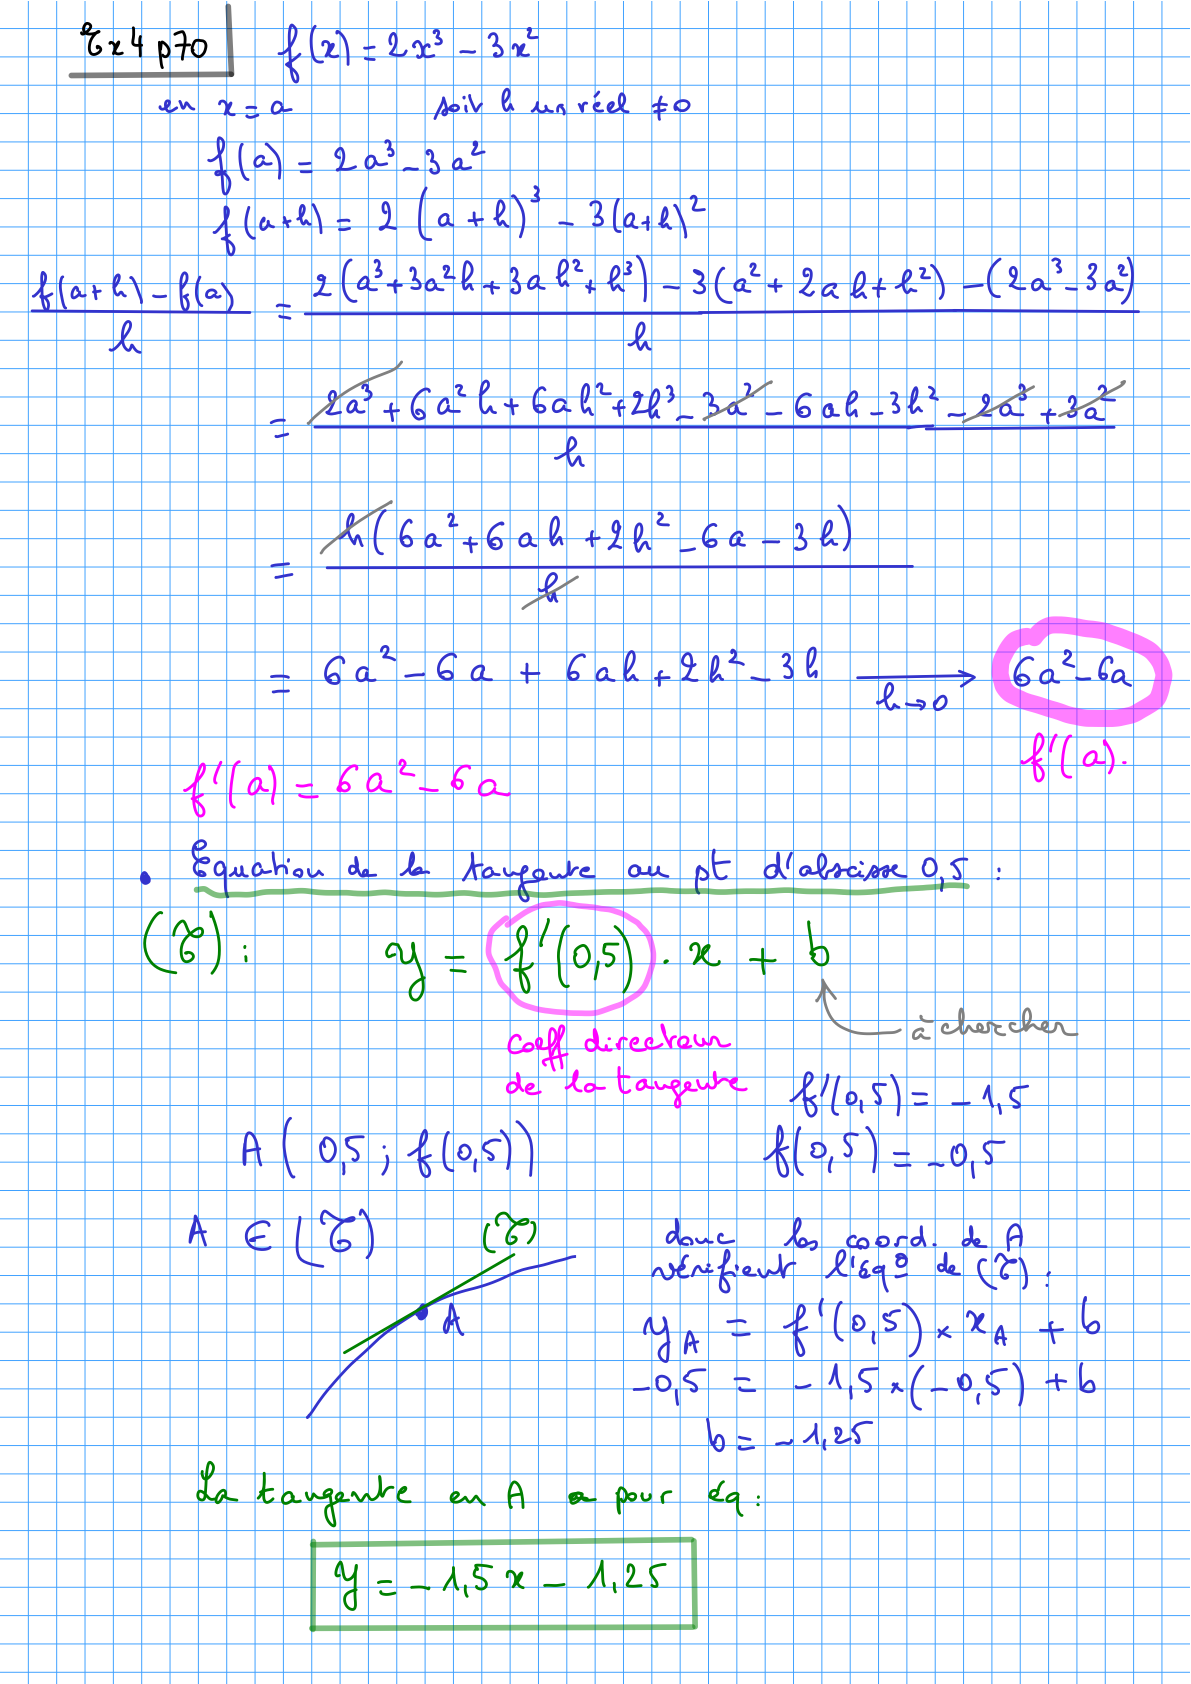 Ex 4 p70
f(x) = 2x³ - 3x²
en x = a soit h un réel ≠ 0
f(a) = 2a³ - 3a²
f(a+h) = 2(a+h)³ - 3(a+h)²
(f(a+h) - f(a))/h = (2(a³+3a²h+3ah²+h³) - 3(a²+2ah+h²) - (2a³-3a²))/h
= (2a³ + 6a²h + 6ah² + 2h³ - 3a² - 6ah - 3h² - 2a³ + 3a²)/h
= h(6a² + 6ah + 2h² - 6a - 3h)/h
= 6a² - 6a + 6ah + 2h² - 3h ⟶ 6a² - 6a
h→0
f'(a).
f'(a) = 6a² - 6a
• Equation de la tangente au pt d'abscisse 0,5 :
(T) : y = f'(0,5) . x + b
à chercher
coeff directeur
de la tangente
f'(0,5) = -1,5
A (0,5 ; f(0,5))
f(0,5) = -0,5
A ∈ (T)
(T)
A
donc les coord. de A
vérifient l'éqº de (T) :
y_A = f'(0,5) × x_A + b
-0,5 = -1,5 × (-0,5) + b
b = -1,25
La tangente en A a pour éq :
y = -1,5x - 1,25